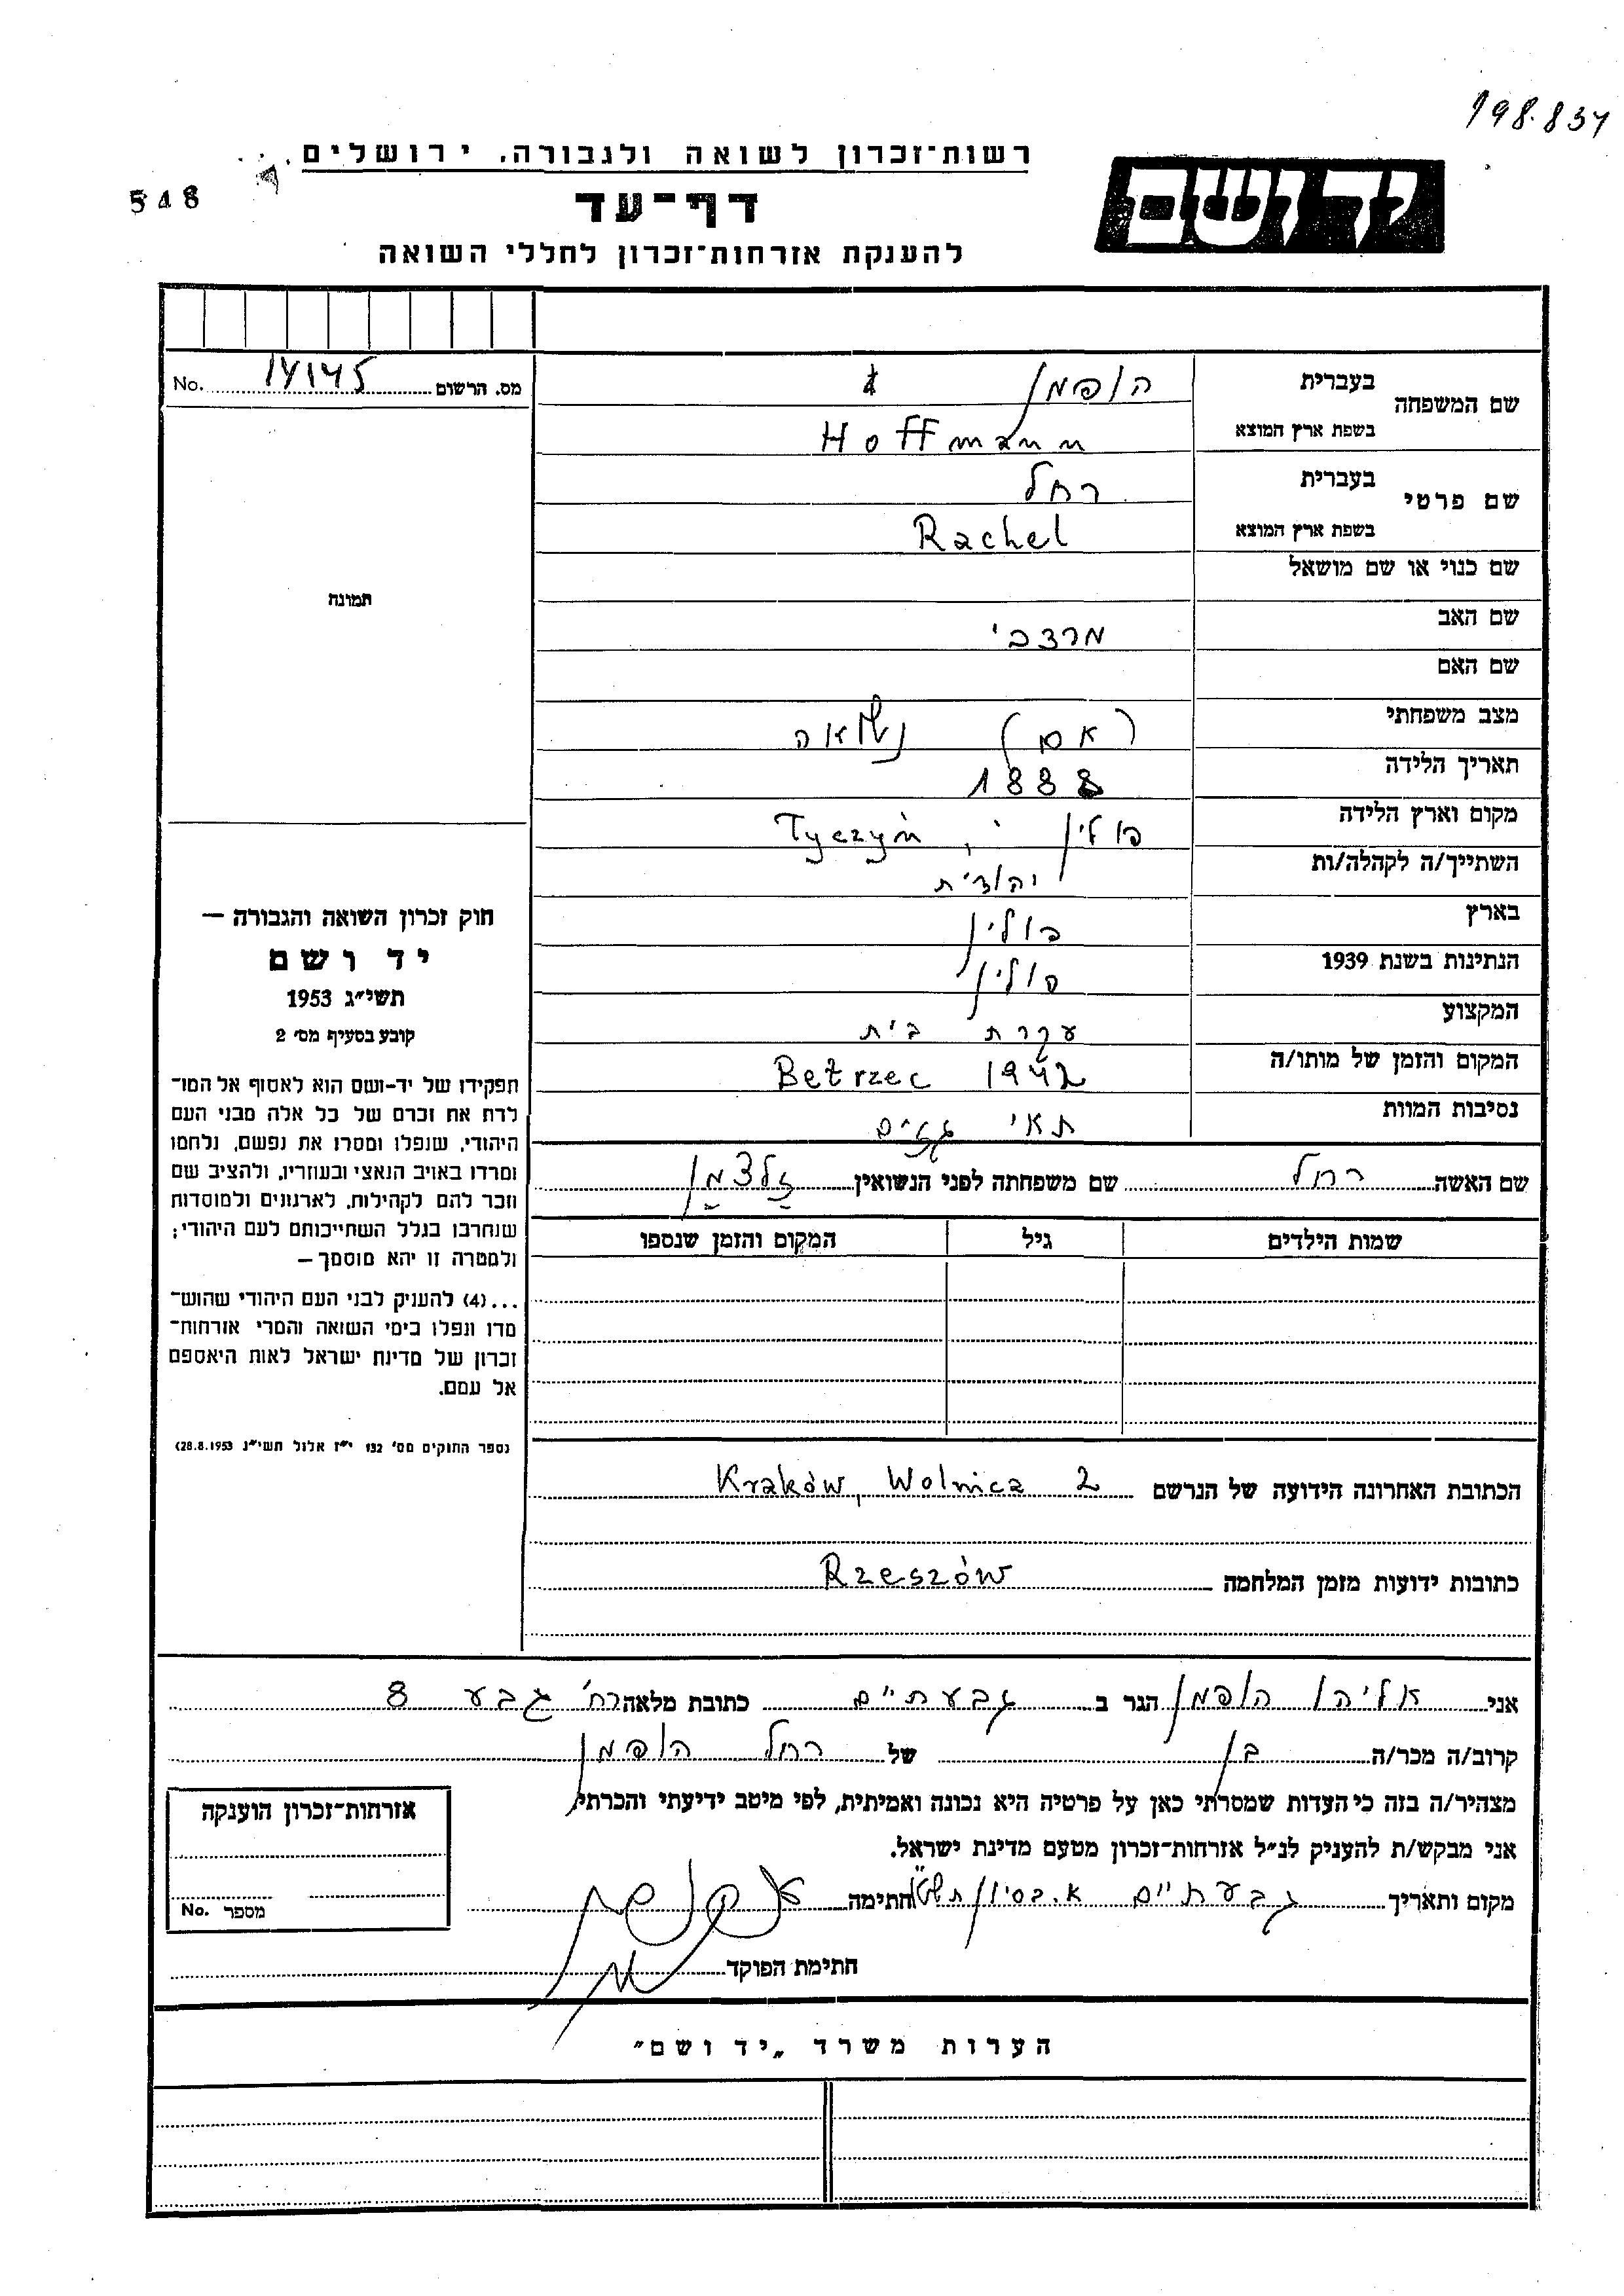 198.837
רשות־זכרון לשואה ולגבורה. ירושלים
548
יד ושם
דף־עד
להענקת אזרחות־זכרון לחללי השואה
מס. הרשום 14145 No.
שם המשפחה
בעברית הופמן
בשפת ארץ המוצא Hoffmann
שם פרטי
בעברית רחל
בשפת ארץ המוצא Rachel
שם כנוי או שם מושאל
תמונה
שם האב מרדכי
שם האם
מצב משפחתי (אם) נשואה
תאריך הלידה 1888
מקום וארץ הלידה פולין, Tyczyń
השתייך/ה לקהלה/ות יהודית
בארץ פולין
הנתינות בשנת 1939 פולין
המקצוע עקרת בית
המקום והזמן של מותו/ה Bełrzec 1942
נסיבות המוות תאי גזים
שם האשה רחל שם משפחתה לפני הנשואין זלצמן
שמות הילדים גיל המקום והזמן שנספו
חוק זכרון השואה והגבורה —
יד ושם
תשי״ג 1953
קובע בסעיף מס׳ 2
תפקידו של יד-ושם הוא לאסוף אל המו־
לדת את זכרם של כל אלה מבני העם
היהודי, שנפלו ומסרו את נפשם, נלחמו
ומרדו באויב הנאצי ובעוזריו, ולהציב שם
וזכר להם לקהילות, לארגונים ולמוסדות
שנחרבו בגלל השתייכותם לעם היהודי;
ולמטרה זו יהא מוסמך —
...(4) להעניק לבני העם היהודי שהוש־
מדו ונפלו בימי השואה והמרי אזרחות־
זכרון של מדינת ישראל לאות היאספם
אל עמם.
(ספר החוקים מס׳ 132 י״ז אלול תשי״ג 28.8.1953)
הכתובת האחרונה הידועה של הנרשם Kraków, Wolnica 2
כתובות ידועות מזמן המלחמה Rzeszów
אני אליהו הופמן הגר ב גבעתיים כתובת מלאה רח׳ גבע 8
קרוב/ה מכר/ה בן של רחל הופמן
מצהיר/ה בזה כי העדות שמסרתי כאן על פרטיה היא נכונה ואמיתית, לפי מיטב ידיעתי והכרתי,
אני מבקש/ת להעניק לנ״ל אזרחות־זכרון מטעם מדינת ישראל.
מקום ותאריך גבעתיים חתימה
חתימת הפוקד
אזרחות־זכרון הוענקה
מספר No.
הערות משרד „יד ושם״